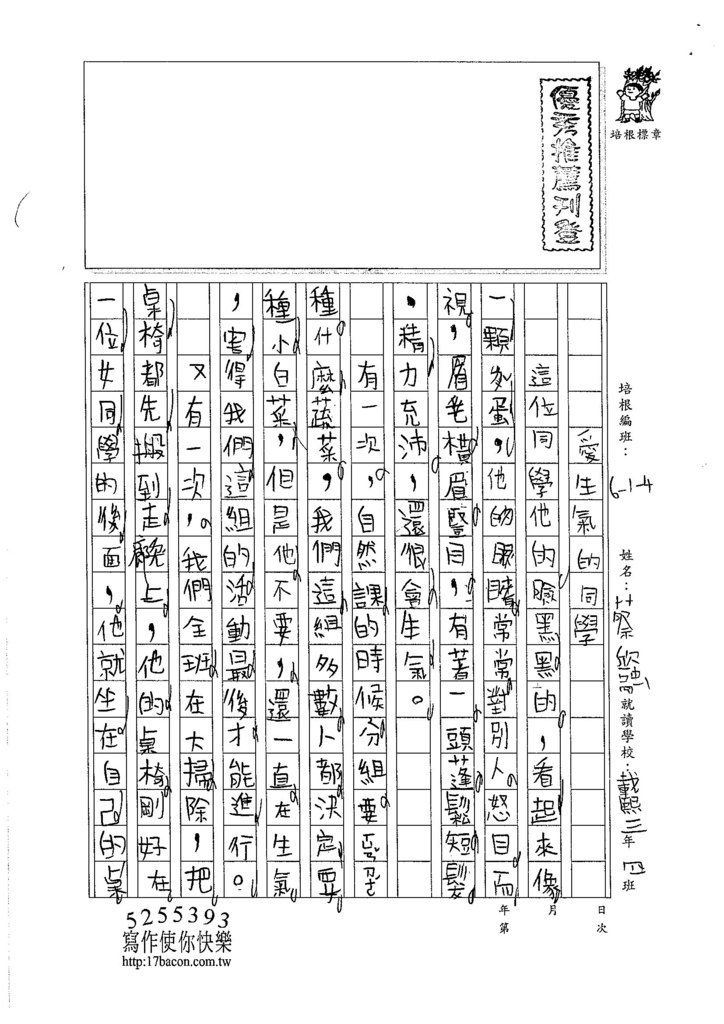 優秀推薦刊登
培根標章
培根編班：6-1-4 姓名：蔡 就讀學校：載熙三年四班
日
月
年
第 次
愛生氣的同學
這位同學他的臉黑黑的，看起來像
一顆滷蛋，他的眼睛常常對別人怒目而
視，眉毛橫眉豎目，有著一頭蓬鬆短髮
，精力充沛，還很會生氣。
有一次，自然課的時候分組要
種什麼蔬菜，我們這組多數人都決定要
種小白菜，但是他不要，還一直在生氣
，害得我們這組的活動最後才能進行。
又有一次，我們全班在大掃除，把
桌椅都先搬到走廊上，他的桌椅剛好在
一位女同學的後面，他就坐在自己的桌
5255393
寫作使你快樂
http:17bacon.com.tw